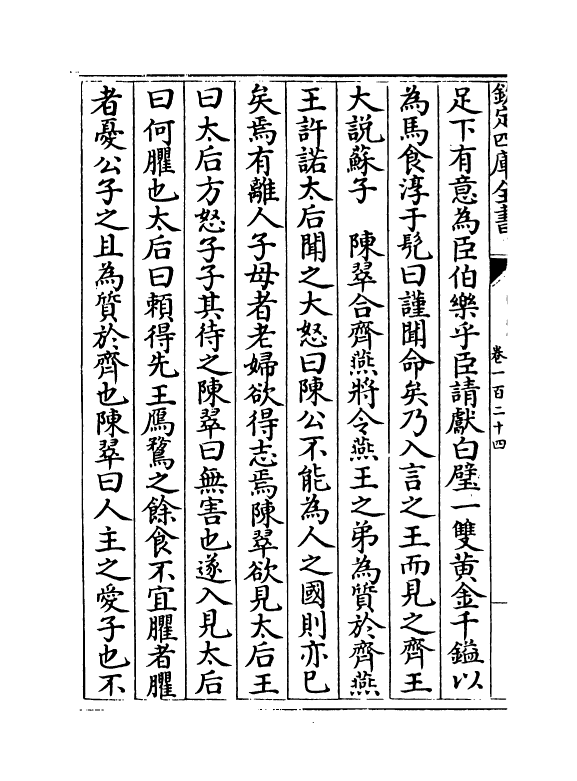 欽定四庫全書
卷一百二十四
足下有意為臣伯樂乎臣請獻白璧一雙黄金千鎰以
為馬食淳于髡曰謹聞命矣乃入言之王而見之齊王
大説蘇子　陳翠合齊燕將令燕王之弟為質於齊燕
王許諾太后聞之大怒曰陳公不能為人之國則亦已
矣焉有離人子母者老婦欲得志焉陳翠欲見太后王
曰太后方怒子子其待之陳翠曰無害也遂入見太后
曰何臞也太后曰頼得先王鴈鶩之餘食不宜臞者臞
者憂公子之且為質於齊也陳翠曰人主之愛子也不